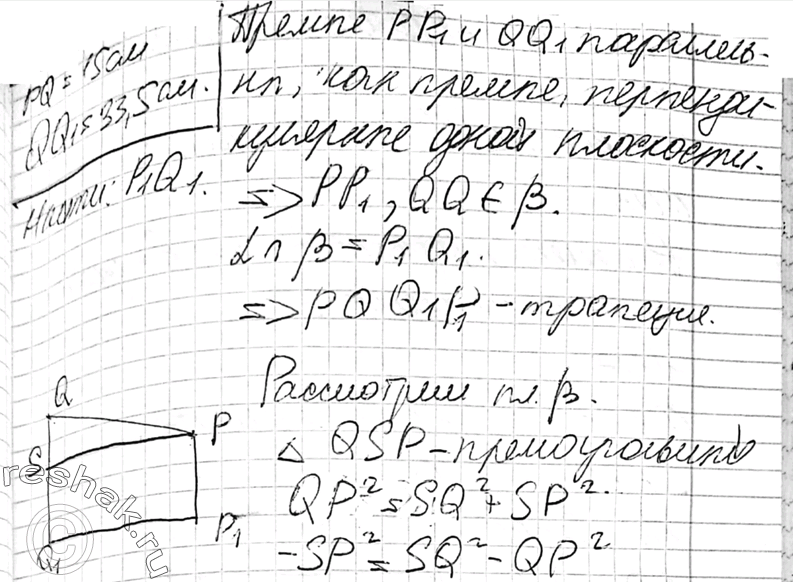 PQ = 15 см
QQ₁ = 33,5 см.
Найти: P₁Q₁.
Прямые PP₁ и QQ₁ параллель-
ны, как прямые, перпенди-
кулярные одной плоскости.
=> PP₁, QQ ∈ β.
α ∩ β = P₁Q₁.
=> PQQ₁P₁ - трапеция.
Рассмотрим пл. β.
△ QSP - прямоугольный
QP² = SQ² + SP².
-SP² = SQ² - QP²
Q
P
S
P₁
Q₁
reshak.ru